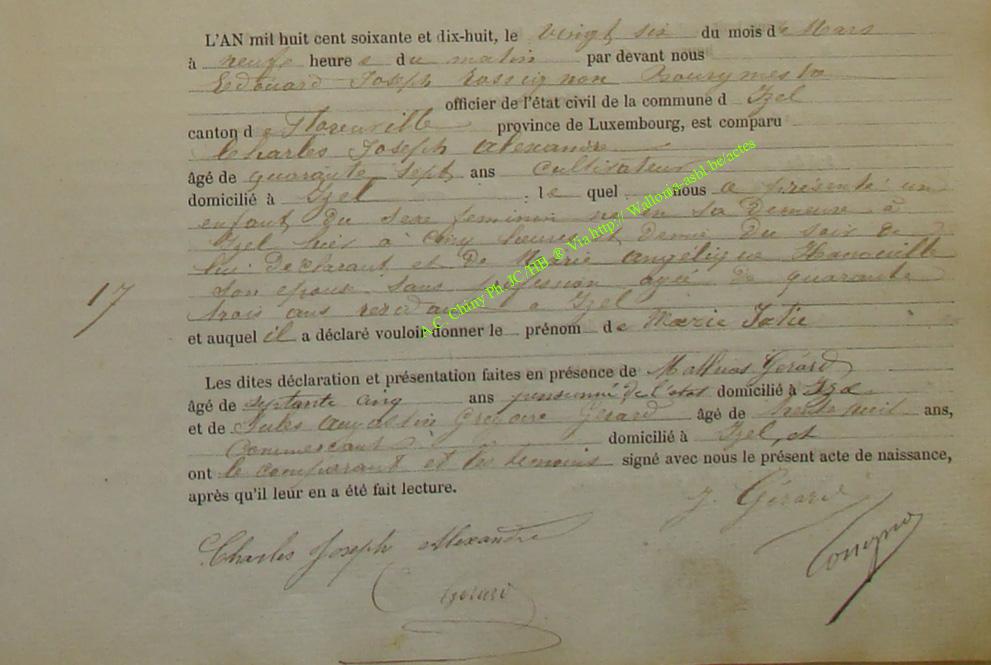 L'AN mil huit cent soixante et dix-huit, le vingt six du mois de Mars
à neufe heure s du matin par devant nous
Edouard Joseph Rossignon Bourgmestre
officier de l'état civil de la commune d Izel
canton de Florenville province de Luxembourg, est comparu
Charles Joseph Alexandre
âgé de quarante sept ans cultivateur
domicilié à Izel : le quel nous a présenté un
enfant du sexe feminin né en sa demeure à
Izel hier à cinq heures et demie du soir de
lui déclarant et de Marie Angélique
son epouse sans profession agée de quarante
trois ans residant à Izel
17
et auquel il a déclaré vouloir donner le prénom de Marie
Les dites déclaration et présentation faites en présence de Mathias Gérard
âgé de septante cinq ans pensionné de l'état domicilié à Izel
et de Jules Augustin Grégoire Gérard âgé de trente huit ans,
Commercant domicilié à Izel, et
ont le comparant et les temoins signé avec nous le présent acte de naissance,
après qu'il leur en a été fait lecture.
J. Gérard
Charles Joseph Alexandre
Gérard
A.C. Chiny Ph JC/HB ® Via http:// Wallonia-asbl.be/actes